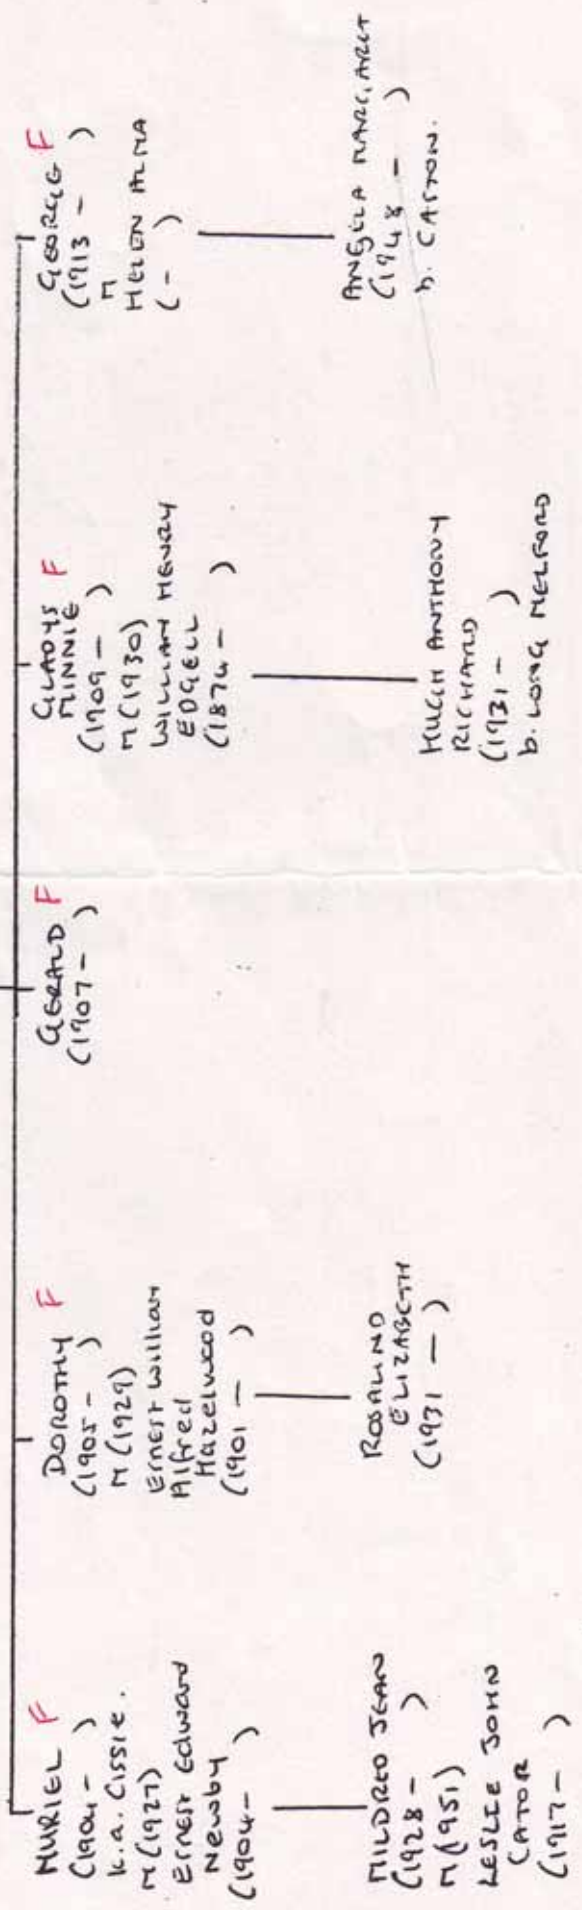 MURIEL F
(1904 - )
k.a. Cissie.
M (1927)
Ernest Edward
Newby
(1904 - )
MILDRED JEAN
(1928 - )
M (1951)
LESLIE JOHN
CATOR
(1917 - )
DOROTHY F
(1905 - )
M (1929)
Ernest William
Alfred
Hazelwood
(1901 - )
ROSALIND
ELIZABETH
(1931 - )
GERALD F
(1907 - )
GLADYS F
MINNIE
(1909 - )
M (1930)
WILLIAM HENRY
EDGELL
(1874 - )
HUGH ANTHONY
RICHARD
(1931 - )
b. LONG MELFORD
GEORGE F
(1913 - )
M
HELEN ALMA
( - )
ANGELA MARGARET
(1948 - )
b. CASTON.